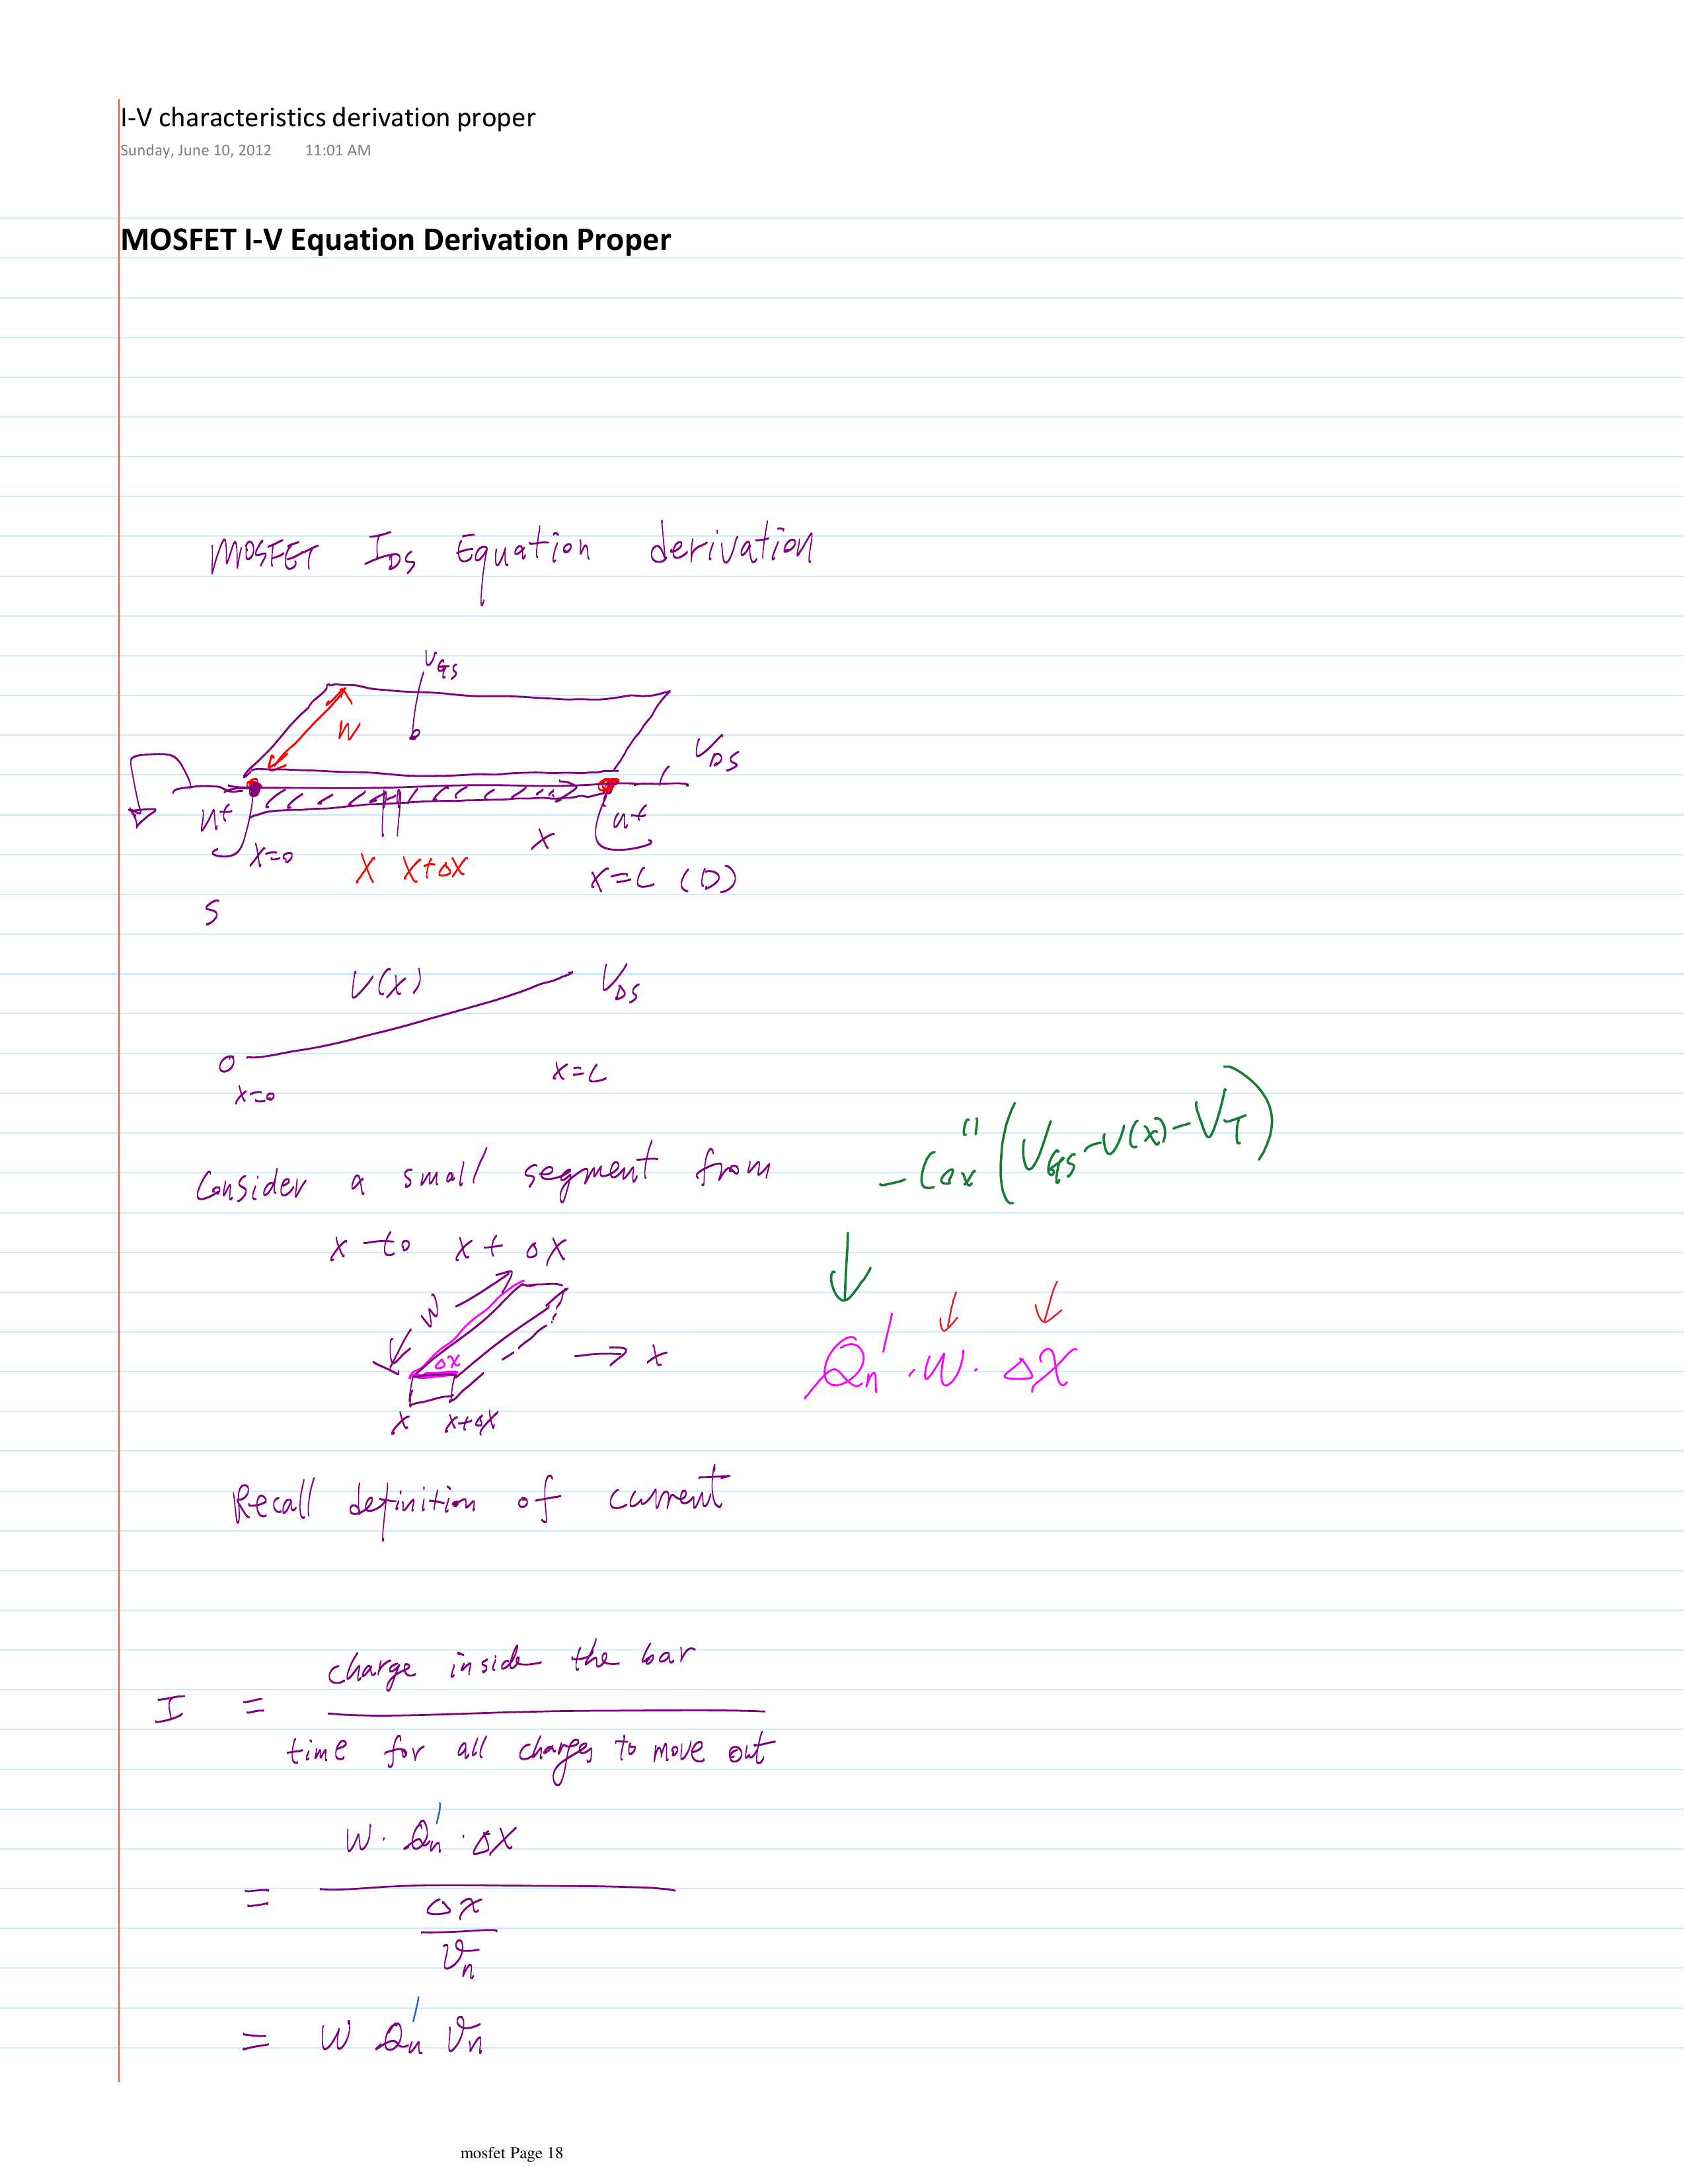 I-V characteristics derivation proper
Sunday, June 10, 2012 11:01 AM
MOSFET I-V Equation Derivation Proper
MOSFET IDS Equation derivation
VGS
W
VDS
n+ n+
x=0 x x+Δx x x=L (D)
S
V(x) VDS
0
x=0 x=L
Consider a small segment from
x to x+Δx
-Cox"(VGS-V(x)-VT)
W
Δx
→ x
x x+Δx
Qn'·W·Δx
Recall definition of current
charge inside the bar
I = 
time for all charges to move out
W·Qn'·Δx
=
Δx
vn
= W Qn' vn
mosfet Page 18